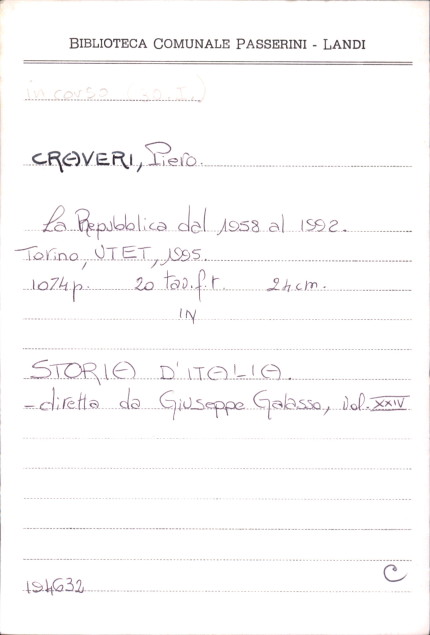 BIBLIOTECA COMUNALE PASSERINI - LANDI
in corso
CRAVERI, Piero.
La Repubblica dal 1958 al 1992.
Torino, UTET, 1995.
1074 p. 20 tav. f.t. 24 cm.
IN
STORIA D'ITALIA.
- diretta da Giuseppe Galasso, vol. XXIV
194632
C